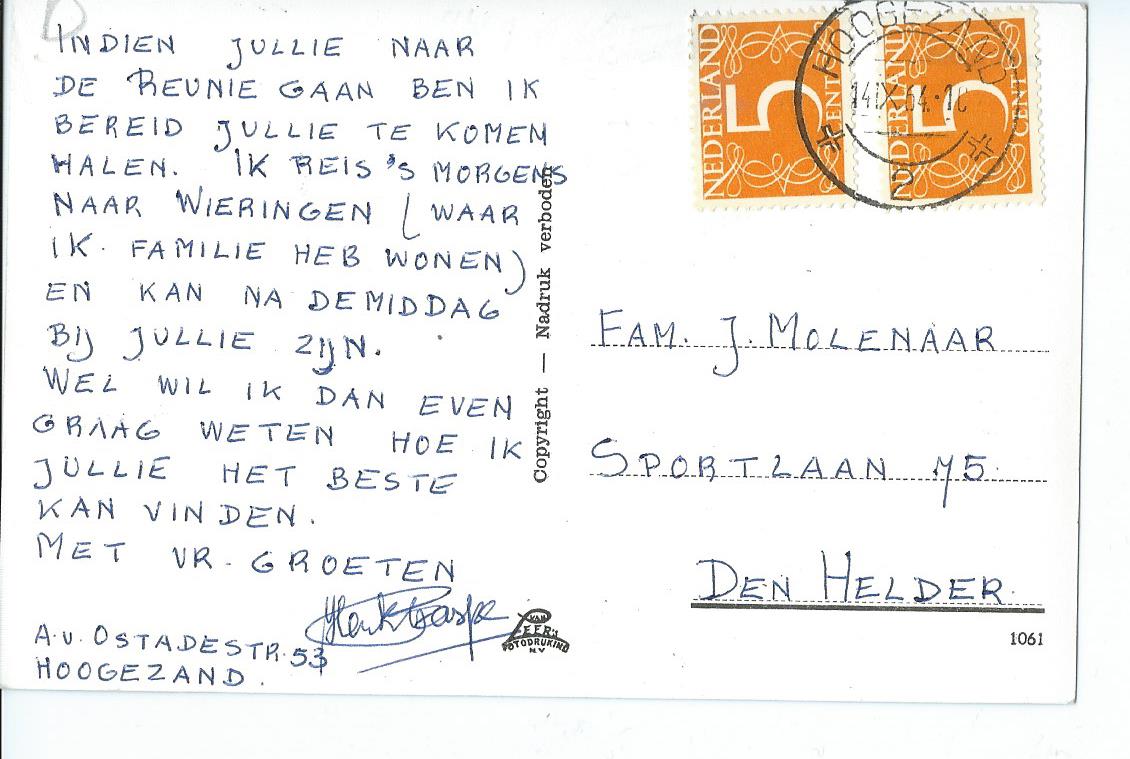 INDIEN JULLIE NAAR
DE REUNIE GAAN BEN IK
BEREID JULLIE TE KOMEN
HALEN. IK REIS 's MORGENS
NAAR WIERINGEN (WAAR
IK FAMILIE HEB WONEN)
EN KAN NA DE MIDDAG
BIJ JULLIE ZIJN.
WEL WIL IK DAN EVEN
GRAAG WETEN HOE IK
JULLIE HET BESTE
KAN VINDEN.
MET VR. GROETEN
A.v. OSTADESTR. 53
HOOGEZAND.
Copyright — Nadruk verboden
VAN
LEER'S
FOTODRUKIND.
N.V.
NEDERLAND
5
CENT
NEDERLAND
5
CENT
HOOGEZAND
14 IX 64
2
FAM. J. MOLENAAR
SPORTLAAN 75
DEN HELDER.
1061